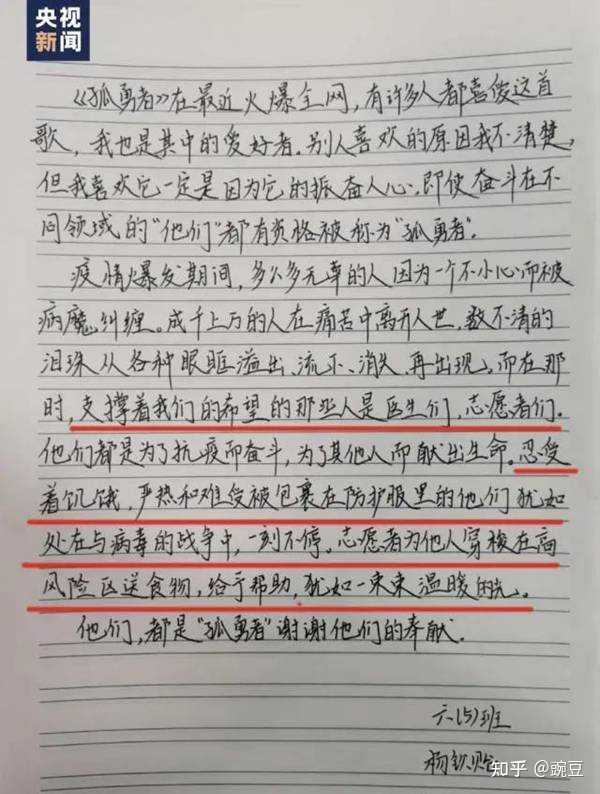 央视
新闻
《孤勇者》在最近火爆全网，有许多人都喜爱这首
歌，我也是其中的爱好者。别人喜欢的原因我不清楚，
但我喜欢它一定是因为它的振奋人心。即使奋斗在不
同领域的“他们”都有资格被称为“孤勇者”。
疫情爆发期间，多么多无辜的人因为一个不小心而被
病魔纠缠。成千上万的人在痛苦中离开人世，数不清的
泪珠从各种眼眶溢出、流下、消失、再出现。而在那
时，支撑着我们的希望的那些人是医生们，志愿者们。
他们都是为了抗疫而奋斗，为了其他人而献出生命。忍受
着饥饿，严热和难受被包裹在防护服里的他们犹如
处在与病毒的战争中，一刻不停。志愿者为他人穿梭在高
风险区送食物，给予帮助，犹如一束束温暖的光。
他们，都是“孤勇者”谢谢他们的奉献。
六（5）班
杨
知乎 @豌豆